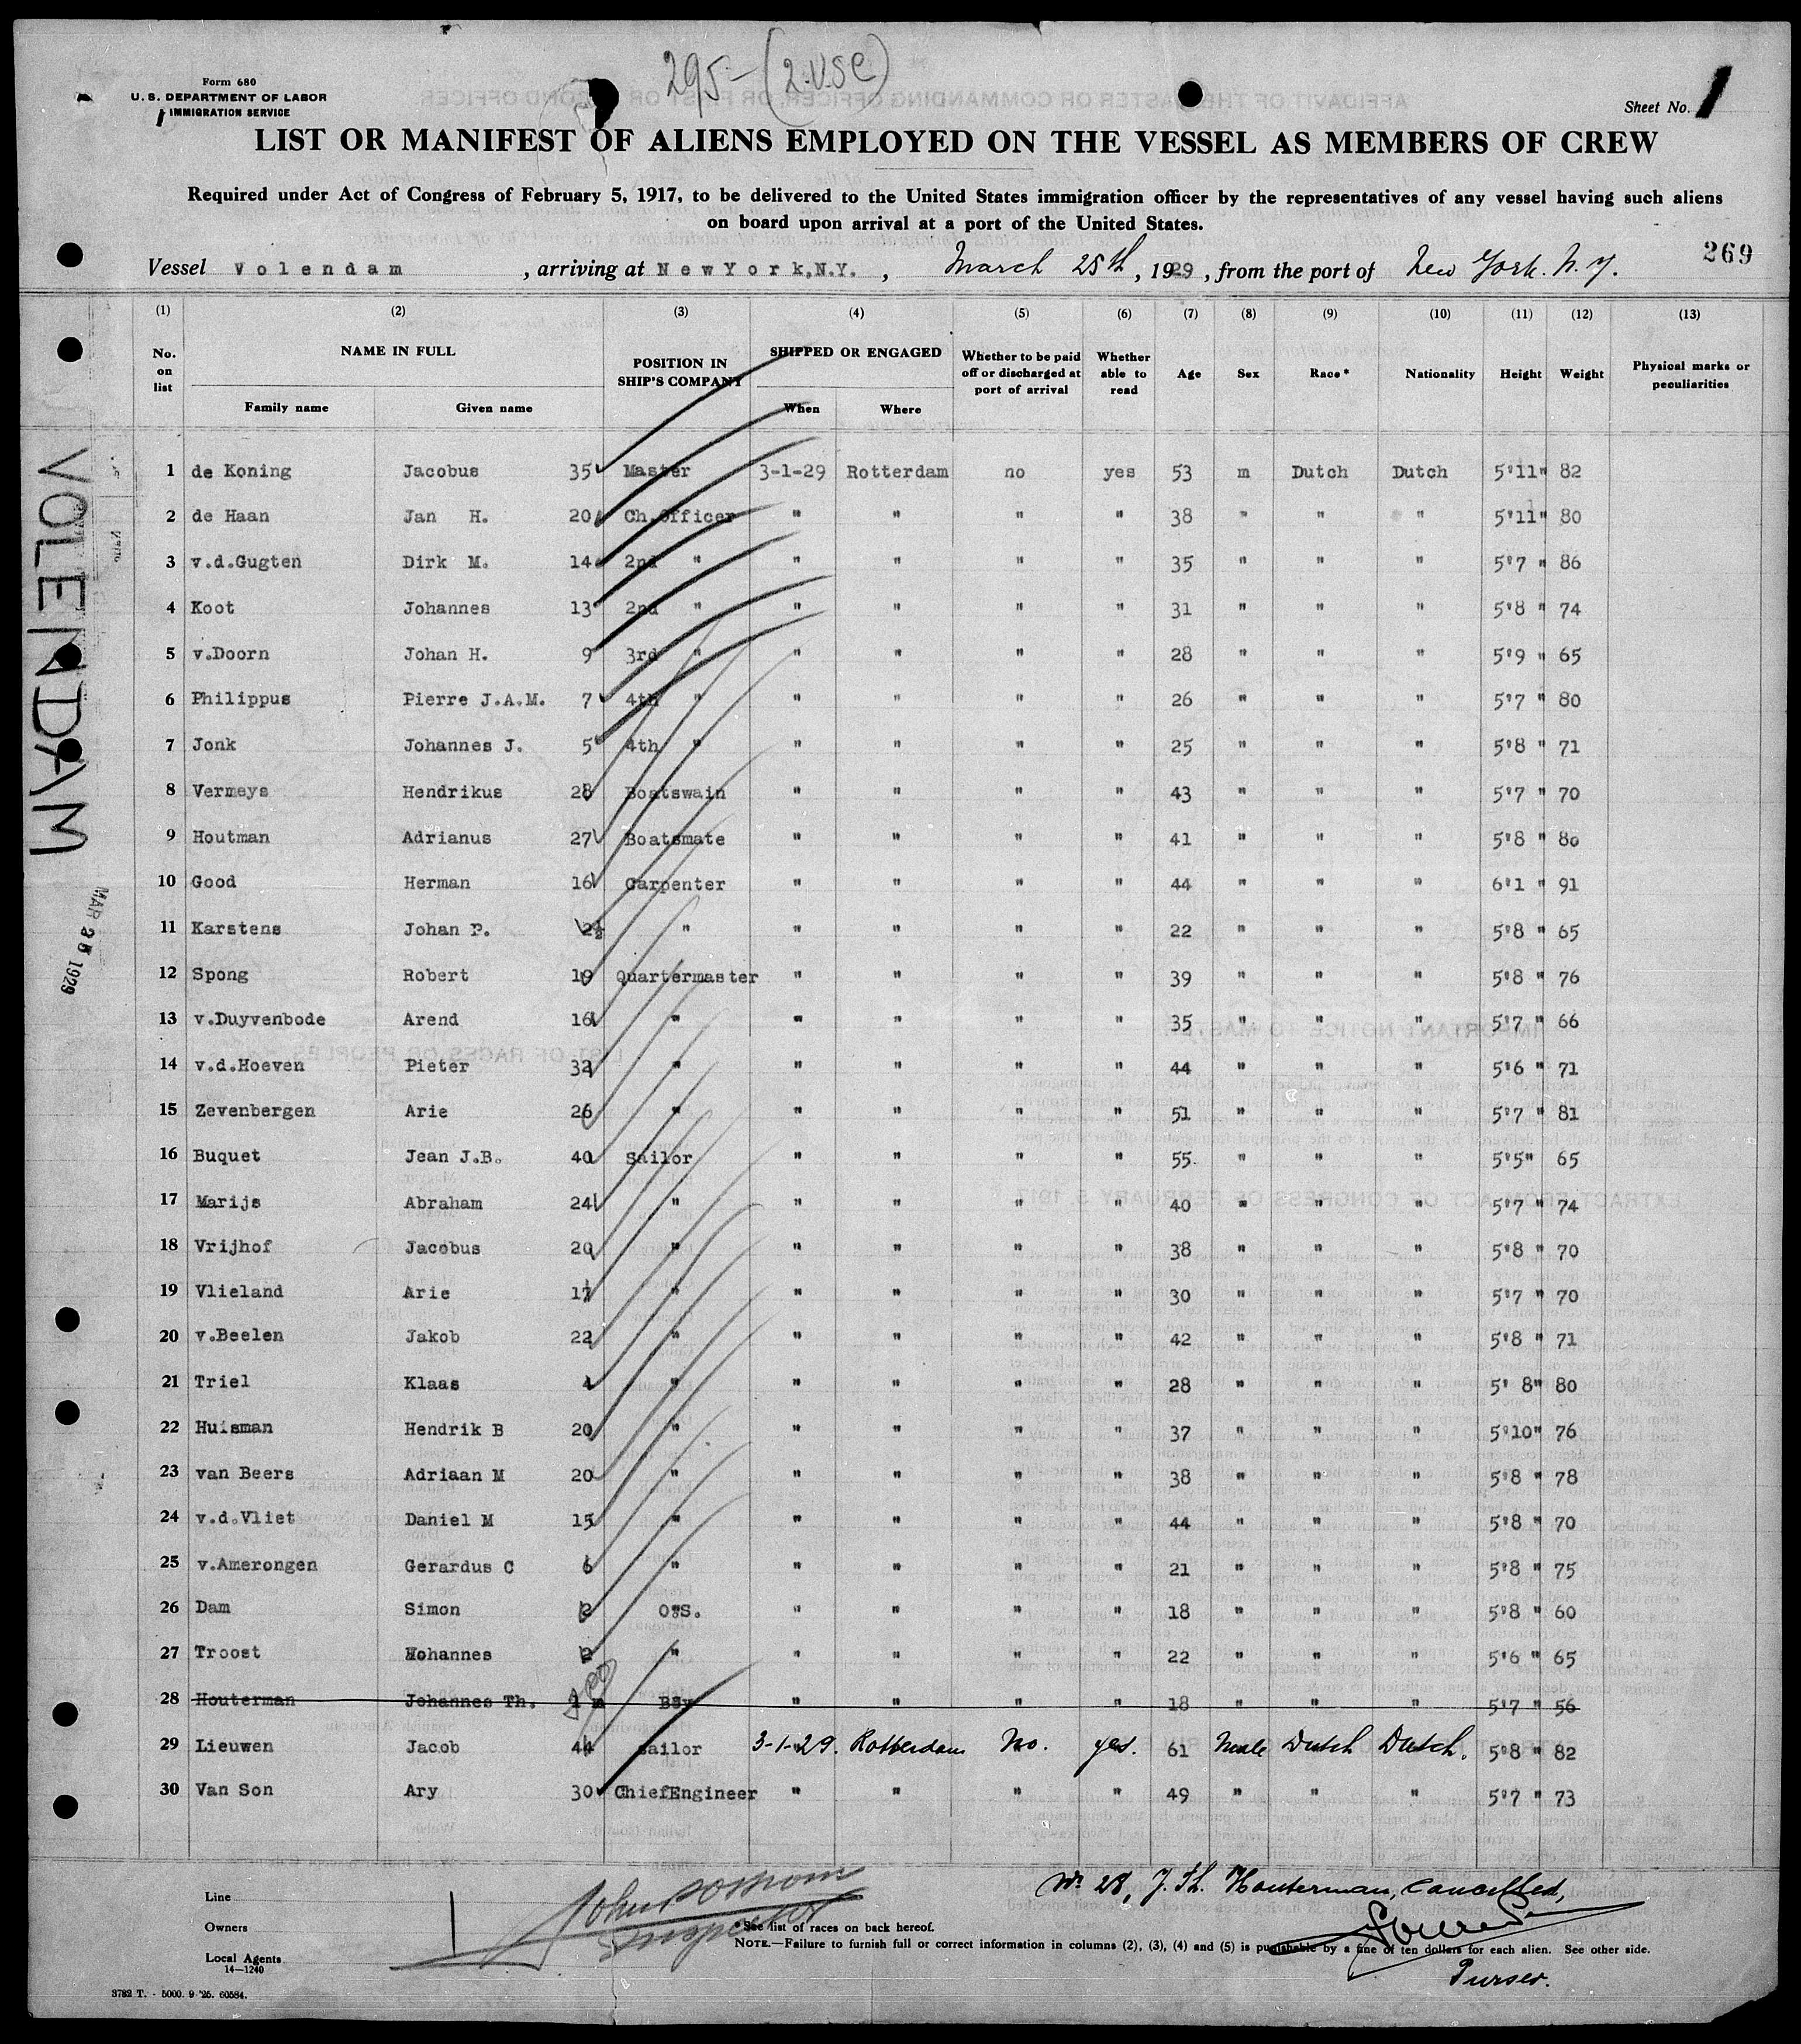 295- (2.USC)
Form 680
U. S. DEPARTMENT OF LABOR
IMMIGRATION SERVICE
Sheet No. 1
LIST OR MANIFEST OF ALIENS EMPLOYED ON THE VESSEL AS MEMBERS OF CREW
Required under Act of Congress of February 5, 1917, to be delivered to the United States immigration officer by the representatives of any vessel having such aliens
on board upon arrival at a port of the United States.
269
Vessel Volendam , arriving at NewYork,N.Y. , March 25th , 1929 , from the port of New York. N.Y.
(1) (2) (3) (4) (5) (6) (7) (8) (9) (10) (11) (12) (13)
No. on list NAME IN FULL Family name Given name POSITION IN SHIP'S COMPANY SHIPPED OR ENGAGED When Where Whether to be paid off or discharged at port of arrival Whether able to read Age Sex Race* Nationality Height Weight Physical marks or peculiarities
1 de Koning Jacobus 35 Master 3-1-29 Rotterdam no yes 53 m Dutch Dutch 5'11" 82
2 de Haan Jan H. 20 Ch.Officer " " " " 38 " " " 5'11" 80
3 v.d.Gugten Dirk M. 14 2nd " " " " " 35 " " " 5'7 " 86
4 Koot Johannes 13 2nd " " " " " 31 " " " 5'8 " 74
5 v.Doorn Johan H. 9 3rd " " " " " 28 " " " 5'9 " 65
6 Philippus Pierre J.A.M. 7 4th " " " " " 26 " " " 5'7 " 80
7 Jonk Johannes J. 5 4th " " " " " 25 " " " 5'8 " 71
8 Vermeys Hendrikus 28 Boatswain " " " " 43 " " " 5'7 " 70
9 Houtman Adrianus 27 Boatsmate " " " " 41 " " " 5'8 " 80
10 Good Herman 16 Carpenter " " " " 44 " " " 6'1 " 91
11 Karstens Johan P. 2½ " " " " " 22 " " " 5'8 " 65
12 Spong Robert 19 Quartermaster " " " " 39 " " " 5'8 " 76
13 v.Duyvenbode Arend 16 " " " " " 35 " " " 5'7 " 66
14 v.d.Hoeven Pieter 32 " " " " " 44 " " " 5'6 " 71
15 Zevenbergen Arie 26 " " " " " 51 " " " 5'7 " 81
16 Buquet Jean J.B. 40 Sailor " " " " 55 " " " 5'5" 65
17 Marijs Abraham 24 " " " " " 40 " " " 5'7 " 74
18 Vrijhof Jacobus 20 " " " " " 38 " " " 5'8 " 70
19 Vlieland Arie 17 " " " " " 30 " " " 5'7 " 70
20 v.Beelen Jakob 22 " " " " " 42 " " " 5'8 " 71
21 Triel Klaas 4 " " " " " 28 " " " 5' 8" 80
22 Huisman Hendrik B 20 " " " " " 37 " " " 5'10" 76
23 van Beers Adriaan M 20 " " " " " 38 " " " 5'8 " 78
24 v.d.Vliet Daniel M 15 " " " " " 44 " " " 5'8 " 70
25 v.Amerongen Gerardus C 6 " " " " " 21 " " " 5'8 " 75
26 Dam Simon 2 O.S. " " " " 18 " " " 5'8 " 60
27 Troost Hohannes 2 " " " " " 22 " " " 5'6 " 65
28 Houterman Johannes Th. 1 m Boy " " " " 18 " " " 5'7 " 56
29 Lieuwen Jacob 44 sailor 3-1-29. Rotterdam No. yes. 61 Male Dutch Dutch. 5'8 " 82
30 Van Son Ary 30 ChiefEngineer " " " " 49 " " " 5'7 " 73
VOLENDAM
MAR 25 1929
No 28, J. Th. Houterman, Cancelled,
Purser.
Line
Owners
Local Agents
14—1240
John
Inspector
*See list of races on back hereof.
NOTE.—Failure to furnish full or correct information in columns (2), (3), (4) and (5) is punishable by a fine of ten dollars for each alien. See other side.
3782 T. - 5000. 9-'25. 60584.